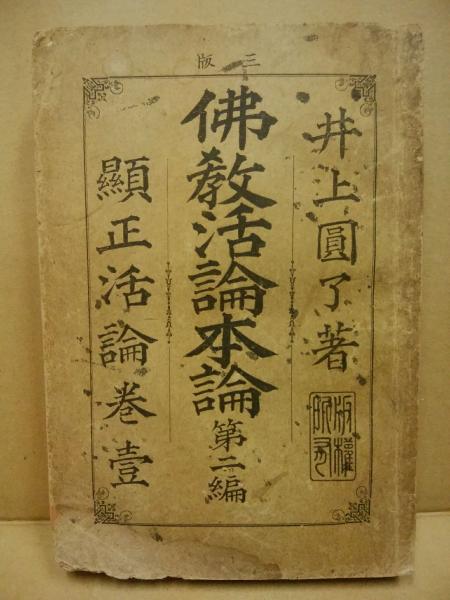 三版
井上圓了著
版權所有
佛教活論本論第二編
顯正活論卷壹